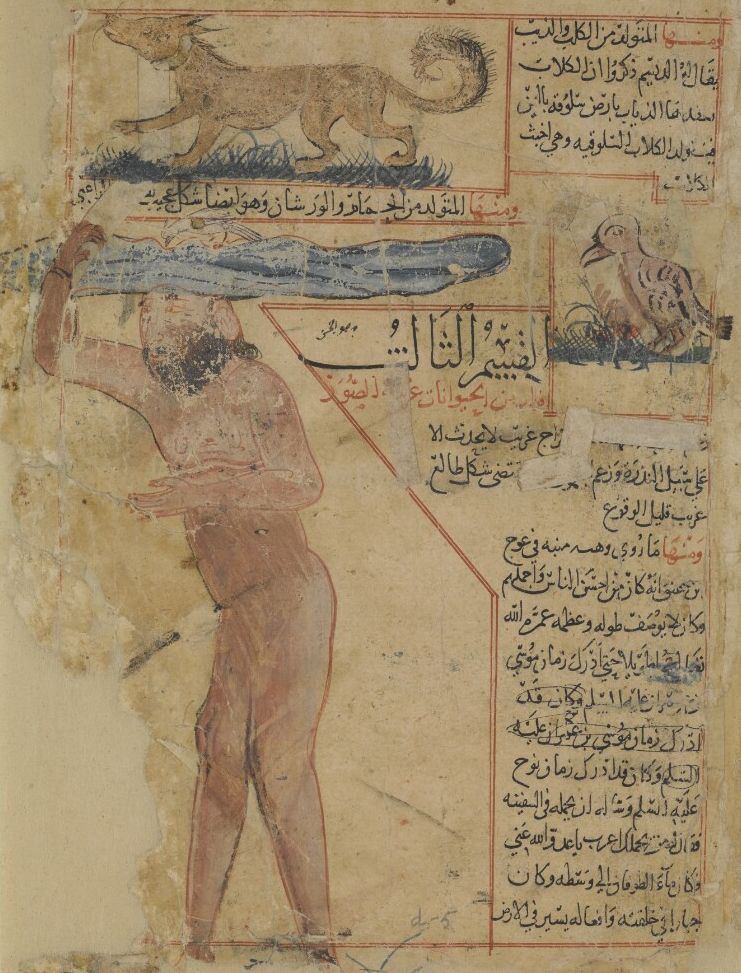 ومنها المتولد من الكلب والذيب
يقال له الديسم ذكروا ان الكلاب
يسفدها الذياب بارض سلوقه
فيتولد الكلاب السلوقيه وهي اخبث
الكلاب
ومنها المتولد من الحمام والورشان وهو ايضا شكل عجيب
القسم الثالث
من الحيوانات الصور
غريب لا يحدث الا
علي سبيل الندرة وزعم شكل طالع
غريب قليل الوقوع
ومنها ما روي وهب منبه في عوج
بن عنق انه كان من احسن الناس واجملهم
وكان لا يوصف طوله وعظمه عمره الله
حتي ادرك زمان موسي
وكان قد
ادرك زمان موسي بن عمران عليه
السلم وكان قد ادرك زمان نوح
عليه السلم وساله ان يحمله في السفينه
يا عدو الله عني
وكان ماء الطوفان الي وسطه وكان
جبارا في خلقته وافعاله يسير في الارض
d-5